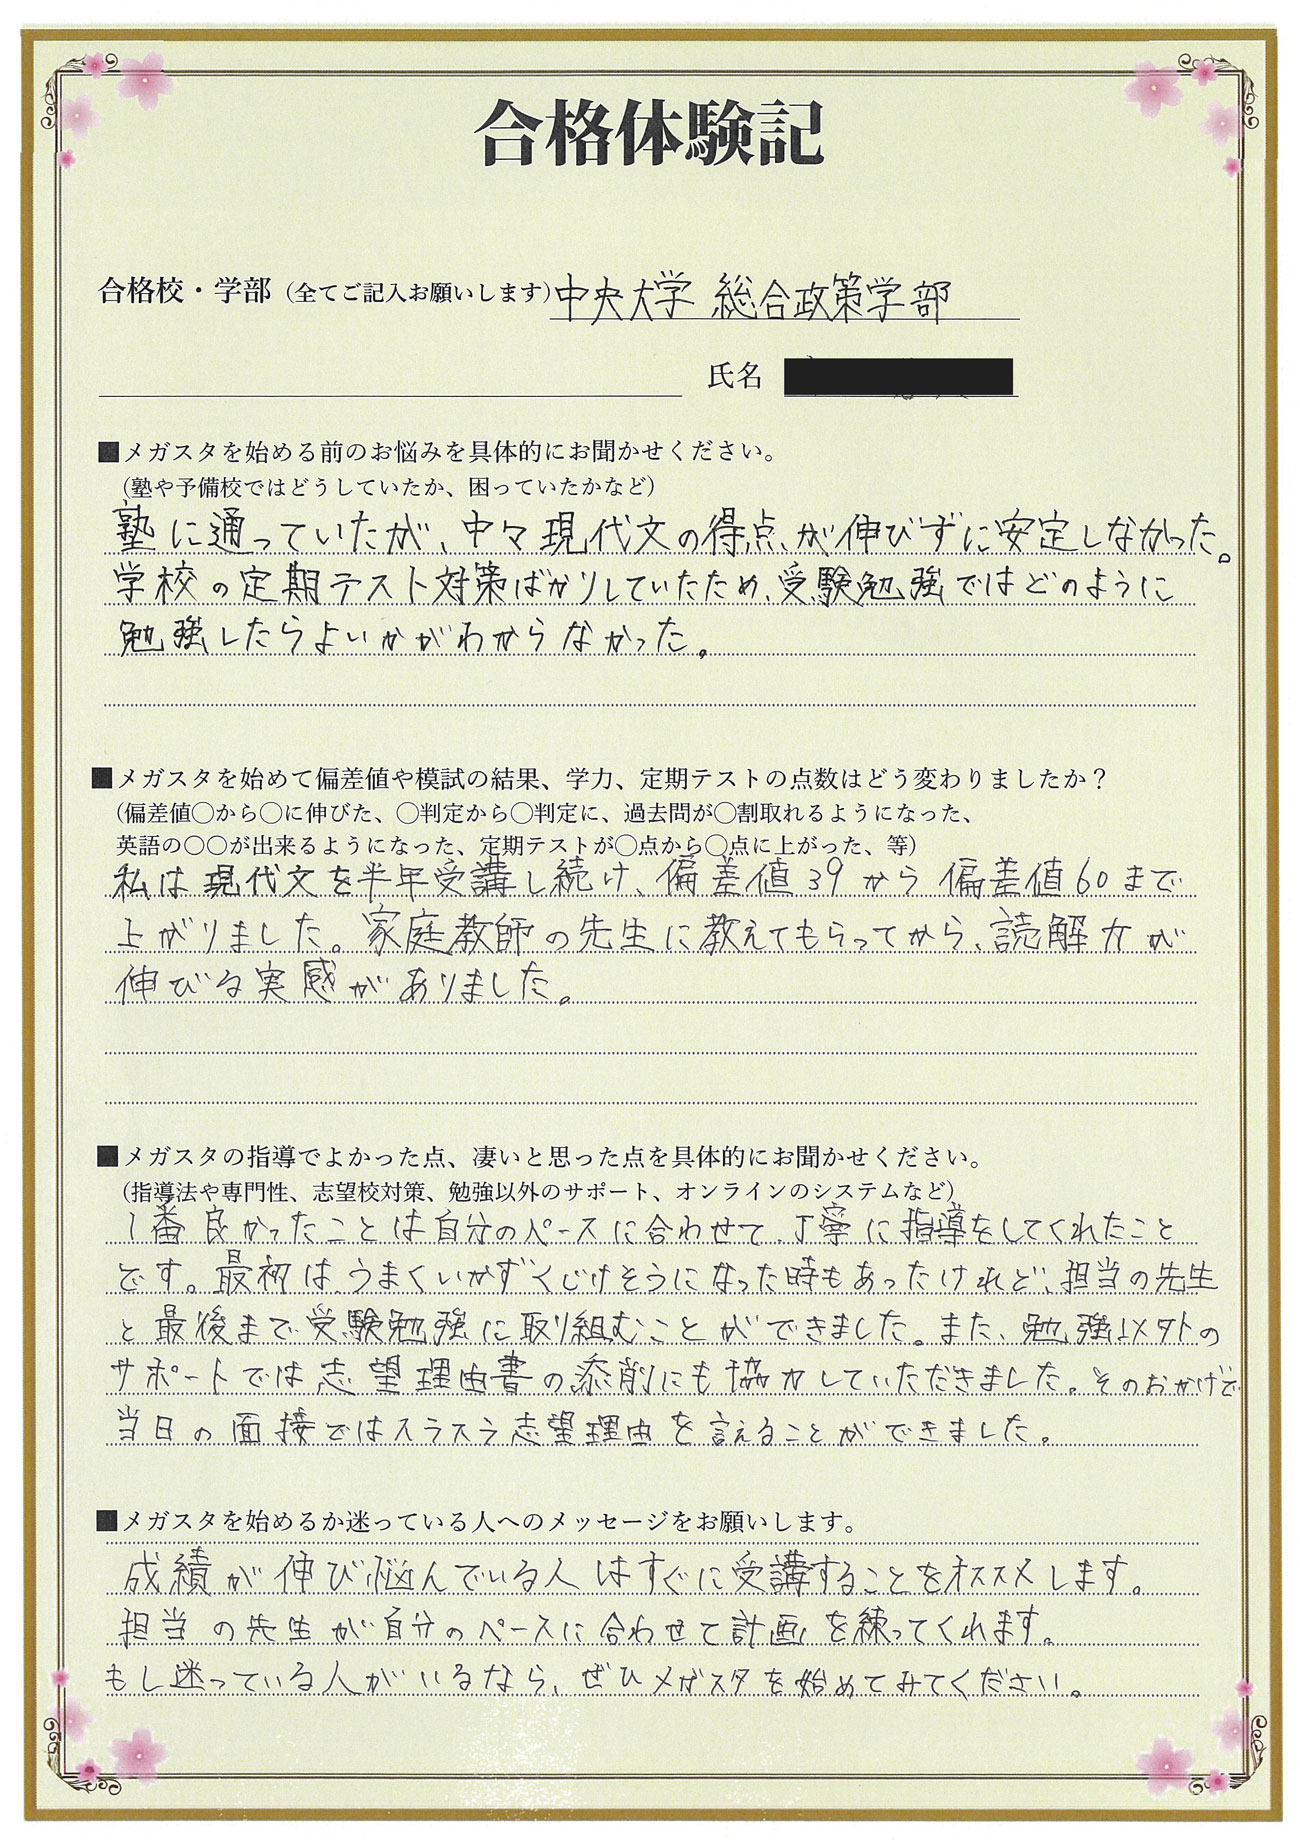 合格体験記
合格校・学部（全てご記入お願いします）中央大学 総合政策学部
氏名
■メガスタを始める前のお悩みを具体的にお聞かせください。
（塾や予備校ではどうしていたか、困っていたかなど）
塾に通っていたが、中々現代文の得点が伸びずに安定しなかった。
学校の定期テスト対策ばかりしていたため、受験勉強ではどのように
勉強したらよいかがわからなかった。
■メガスタを始めて偏差値や模試の結果、学力、定期テストの点数はどう変わりましたか？
（偏差値〇から〇に伸びた、〇判定から〇判定に、過去問が〇割取れるようになった、
英語の〇〇が出来るようになった、定期テストが〇点から〇点に上がった、等）
私は現代文を半年受講し続け、偏差値39から偏差値60まで
上がりました。家庭教師の先生に教えてもらってから、読解力が
伸びる実感がありました。
■メガスタの指導でよかった点、凄いと思った点を具体的にお聞かせください。
（指導法や専門性、志望校対策、勉強以外のサポート、オンラインのシステムなど）
1番良かったことは自分のペースに合わせて、丁寧に指導をしてくれたこと
です。最初は、うまくいかずくじけそうになった時もあったけれど、担当の先生
と最後まで受験勉強に取り組むことができました。また、勉強以外の
サポートでは志望理由書の添削にも協力していただきました。そのおかげで
当日の面接ではスラスラ志望理由を言えることができました。
■メガスタを始めるか迷っている人へのメッセージをお願いします。
成績が伸び悩んでいる人はすぐに受講することをオススメします。
担当の先生が自分のペースに合わせて計画を練ってくれます。
もし迷っている人がいるなら、ぜひメガスタを始めてみてください。